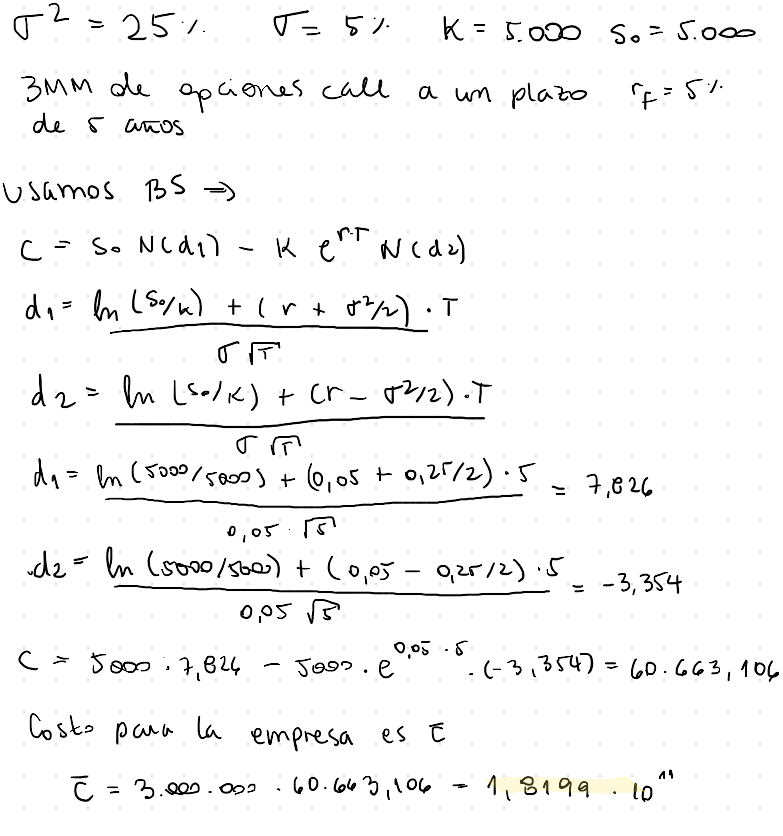 σ² = 25%   σ = 5%   K = 5.000   S₀ = 5.000
3MM de opciones call a un plazo   r_F = 5%
de 5 años
Usamos BS →
C = S₀ N(d₁) - K e^{r·T} N(d₂)
d₁ = ln(S₀/K) + (r + σ²/2) · T
σ√T
d₂ = ln(S₀/K) + (r - σ²/2) · T
σ√T
d₁ = ln(5000/5000) + (0,05 + 0,25/2) · 5 = 7,826
0,05 · √5
d₂ = ln(5000/5000) + (0,05 - 0,25/2) · 5 = -3,354
0,05 √5
C = 5000 · 7,826 - 5000 · e^{0,05 · 5} · (-3,354) = 60.663,106
Costo para la empresa es c̄
c̄ = 3.000.000 · 60.663,106 = 1,8199 · 10¹¹